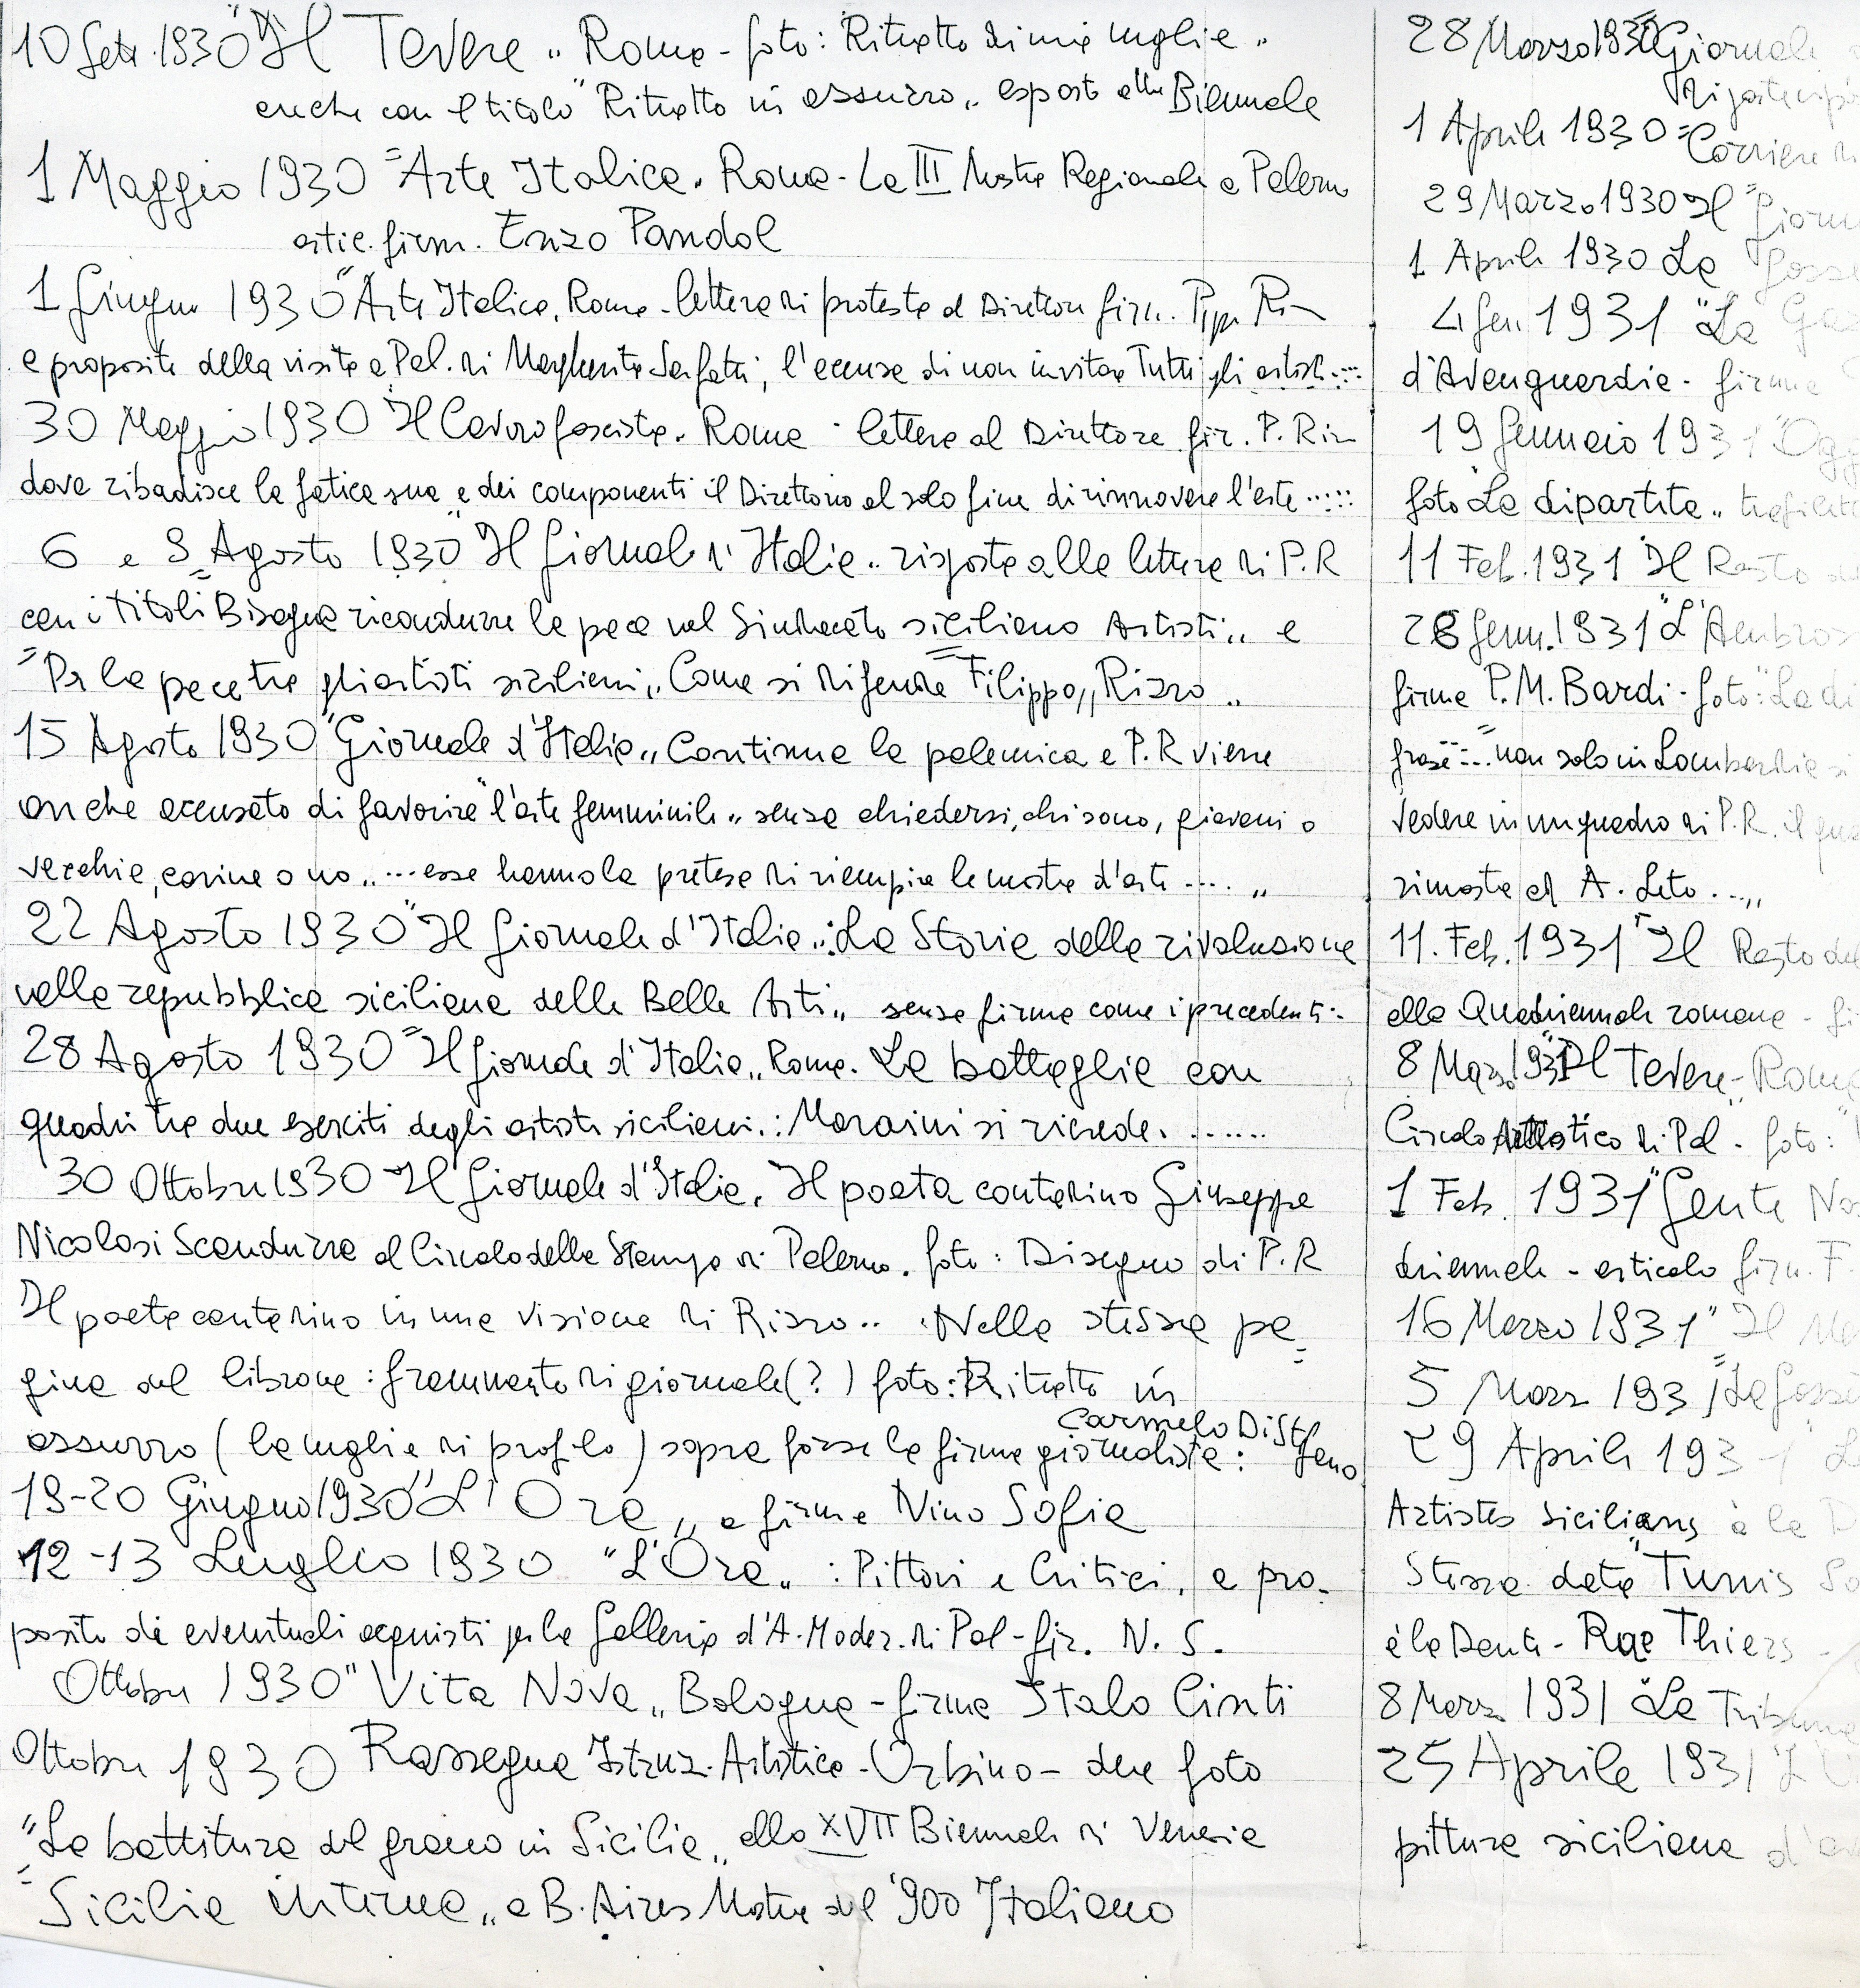 10 Sett. 1930 "Il Tevere„ Roma - foto: Ritratto di mia moglie„
anche con il titolo "Ritratto in azzurro„ esposto alla Biennale
1 Maggio 1930 "Arte Italica„ Roma - La III Mostra Regionale a Palermo
artic. firm. Enzo Pandol
1 Giugno 1930 "Arte Italica„ Roma - lettera di protesta al Direttore firm. Pippo
a proposito della visita a Pal. di Margherita Sarfatti, l'accusa di non invitare Tutti gli artisti....
30 Maggio 1930 Il Lavoro fascista„ Roma - lettera al Direttore fir. P. Riz
dove ribadisce la fatica sua e dei componenti il Direttorio al solo fine di rinnovare l'arte.....
6 e 9 Agosto 1930 "Il Giornale d'Italia„ risposta alla lettera di P.R
con i titoli "Bisogna ricondurre la pace nel Sindacato siciliano Artisti„ e
"Per la pace tra gli artisti siciliani„ Come si difende "Filippo„ Rizzo„
15 Agosto 1930 "Giornale d'Italia„ Continua la polemica e P.R viene
anche accusato di favorire "l'arte femminile„ senza chiedersi, chi sono, giovani o
vecchie, carine o no„ ...esse hanno la pretesa di riempire le mostre d'arte....„
22 Agosto 1930 "Il Giornale d'Italia„: La Storia della rivoluzione
nella repubblica siciliana delle Belle Arti„ senza firma come i precedenti:
28 Agosto 1930 "Il Giornale d'Italia„ Roma. La battaglia con
quadri tra due eserciti degli artisti siciliani.: Maraini si ricrede.......
30 Ottobre 1930 Il Giornale d'Italia. Il poeta contadino Giuseppe
Nicolosi Scandurra al Circolo della Stampa di Palermo. foto: Disegno di P.R
Il poeta contadino in una visione di Rizzo.. Nella stessa pa=
gina del librone: frammento di giornale (?) foto: Ritratto in
azzurro (la moglie di profilo) sopra forse la firma giornalista: Carmelo Diste
feno
19-20 Giugno 1930 "L'Ora„ a firma Nino Sofia
12-13 Luglio 1930 "L'Ora„: Pittori e Critici, a pro-
posito di eventuali acquisti per la Galleria d'A. Moder. di Pal - fir. N. S.
Ottobre 1930 "Vita Nova„ Bologna - firma Italo Cinti
Ottobre 1930 Rassegna Istruz. Artistica - Urbino - due foto
"La battitura del grano in Sicilia„ alla XVII Biennale di Venezia
"Sicilia interna„ a B. Aires Mostra del '900 Italiano
28 Marzo 1930 "Giornale
1 Aprile 1930 "Corriere
29 Marzo 1930 Il "Giorn
1 Aprile 1930 La
4 Gen. 1931 "La
d'Avanguardia - firma
19 Gennaio 1931 "Ogg
foto "La dipartita„ trafiletto
11 Feb. 1931 Il Resto
28 Genn. 1931 "L'Ambros
firma P.M. Bardi - foto: "La di
frase "....non solo in Lombardia si
vedere in un quadro di P.R. il qua
rimasta al A. Leto...„
11. Feb. 1931 "Il Resto del
alla Quadriennale romana - fi
8 Marzo 1931 "Il Tevere - Roma
Circolo Artistico di Pal - foto:
1 Feb. 1931 "Gente No
driennale - articolo firm. F.
16 Marzo 1931 "Il Me
5 Marz 1931 "La
29 Aprile 1931 "L
Artistes siciliens à la D
Stessa data "Tunis So
à la Dante - Rue Thiers -
8 Marz 1931 "La Tribuna
25 Aprile 1931 L'
pittura siciliana d'a